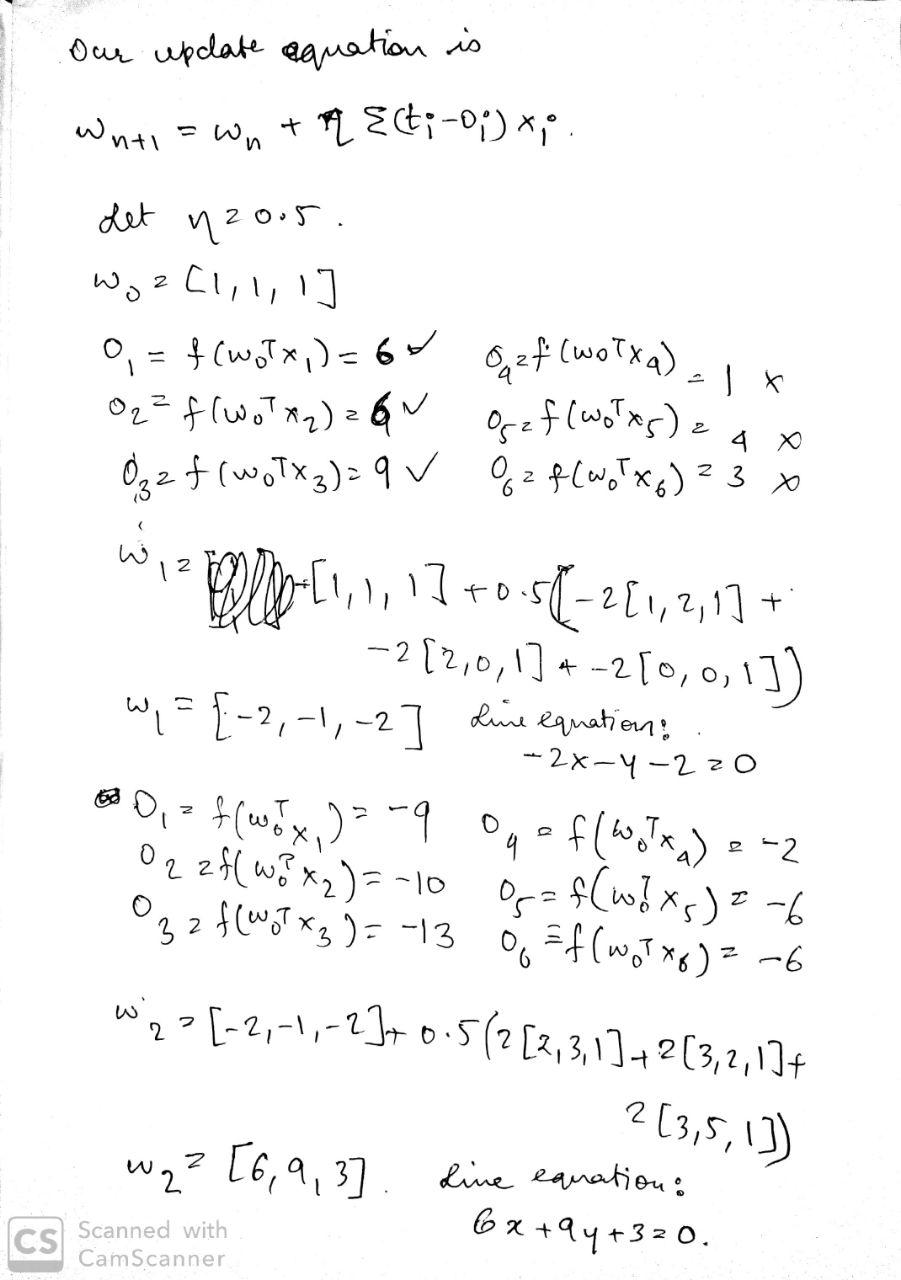 Our update equation is
w_{n+1} = w_n + η Σ(t_i - O_i) x_i.
Let η = 0.5.
w_0 = [1, 1, 1]
O_1 = f(w_0^T x_1) = 6 ✓ O_4 = f(w_0^T x_4) = 1 ×
O_2 = f(w_0^T x_2) = 6 ✓ O_5 = f(w_0^T x_5) = 4 ×
O_3 = f(w_0^T x_3) = 9 ✓ O_6 = f(w_0^T x_6) = 3 ×
w_1 = [1, 1, 1] + 0.5(-2[1, 2, 1] +
-2[2, 0, 1] + -2[0, 0, 1])
w_1 = [-2, -1, -2] Line equation:
-2x - y - 2 = 0
O_1 = f(w_0^T x_1) = -9 O_4 = f(w_0^T x_4) = -2
O_2 = f(w_0^T x_2) = -10 O_5 = f(w_0^T x_5) = -6
O_3 = f(w_0^T x_3) = -13 O_6 = f(w_0^T x_6) = -6
w_2 = [-2, -1, -2] + 0.5(2[2, 3, 1] + 2[3, 2, 1] +
2[3, 5, 1])
w_2 = [6, 9, 3]. Line equation:
6x + 9y + 3 = 0.
CS Scanned with
CamScanner